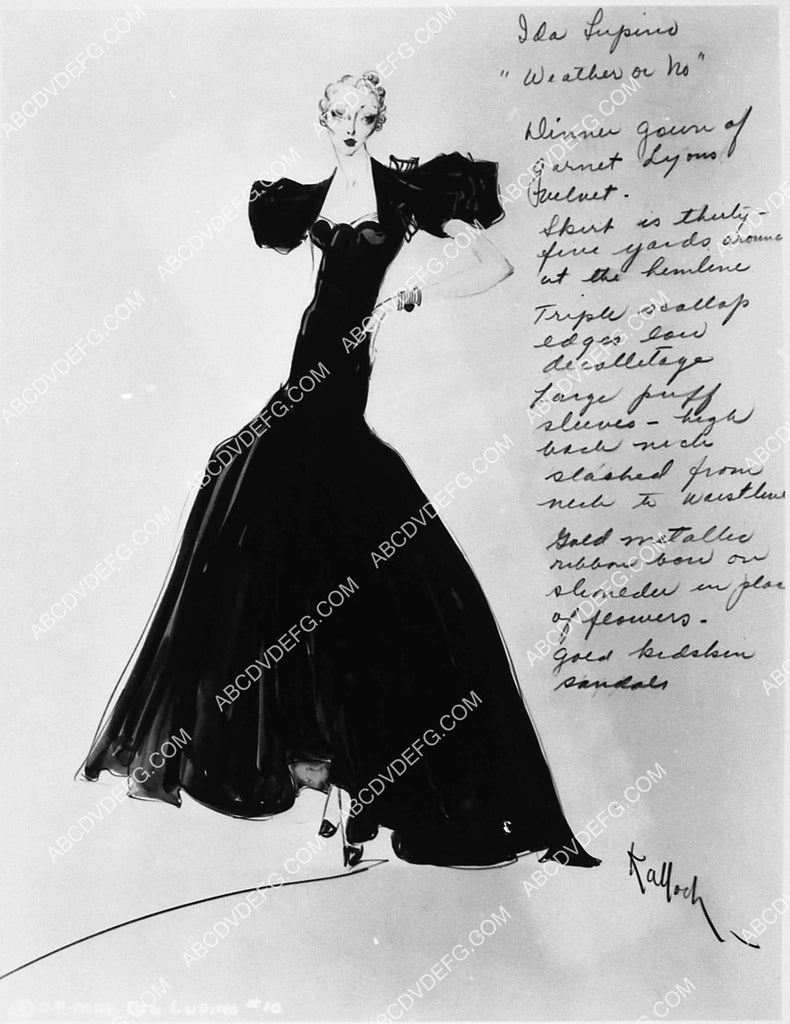 Ida Lupino
"Weather or No"
Dinner gown of
garnet Lyons
Velvet.
Skirt is thirty-
five yards around
at the hemline
Triple scallop
edges low
decolletage
Large puff
sleeves - high
back neck
slashed from
neck to waistline
Gold metallic
ribbon bow on
shoulder in place
of flowers.
Gold kidskin
sandals
Kalloch
C-P-CORP. Ida LUPINO #10
ABCDVDEFG.COM